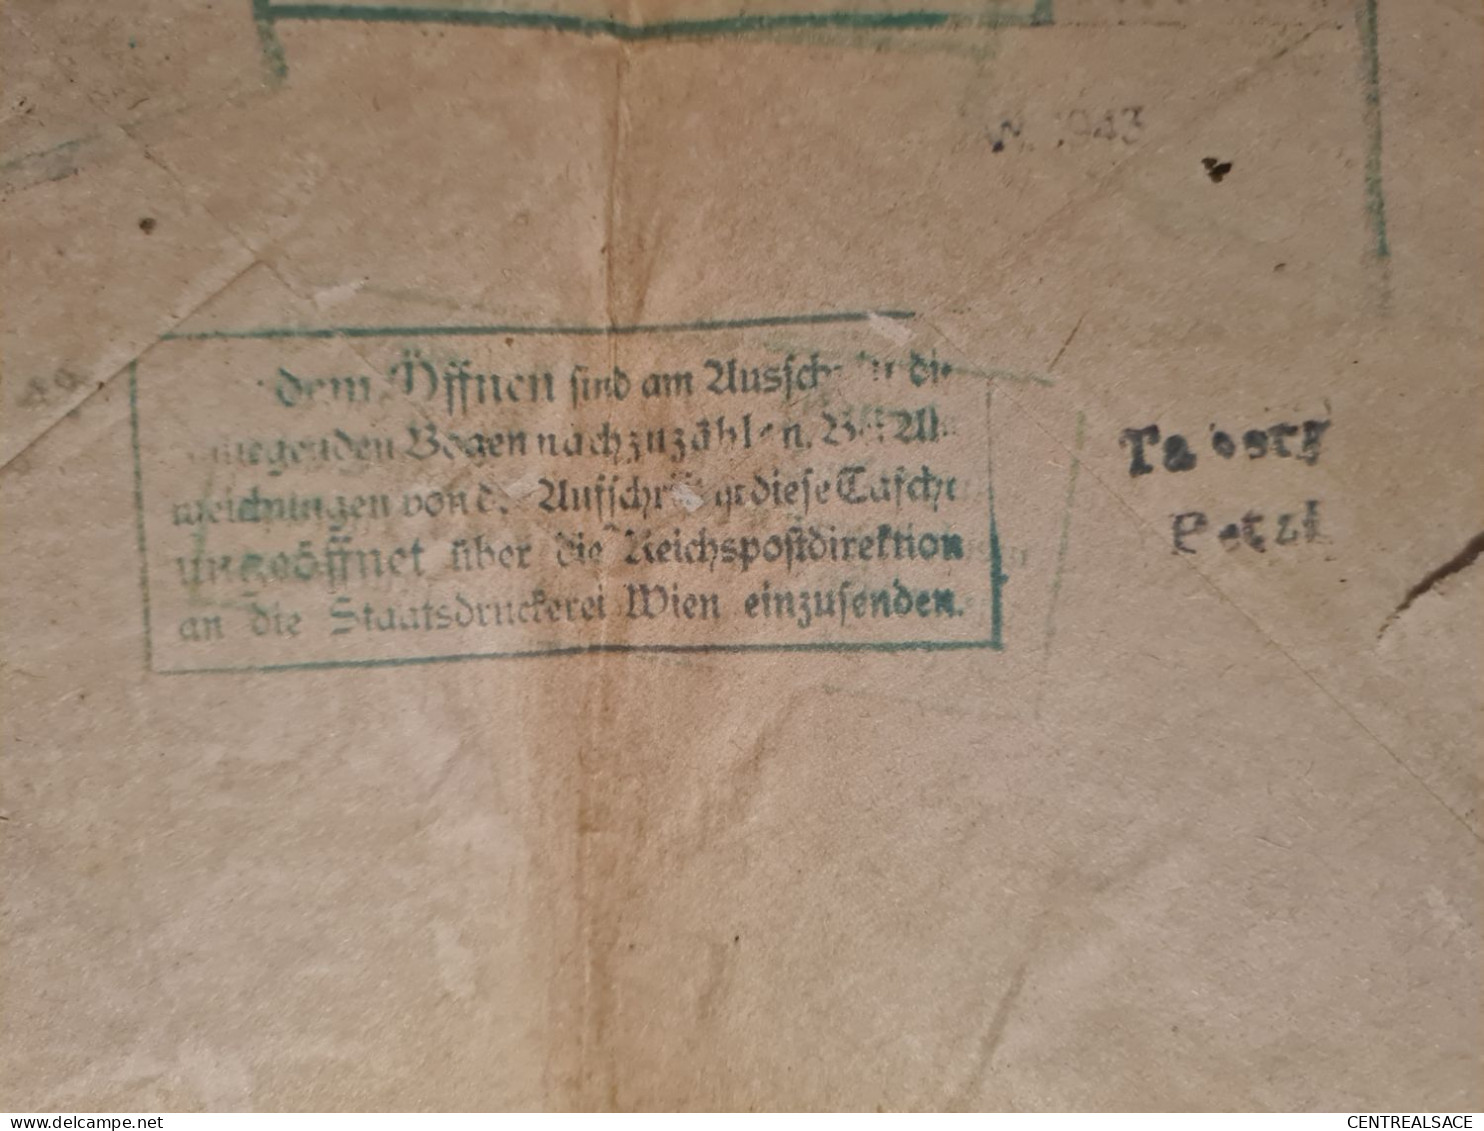 1943
dem Öffnen sind am Ausschnitt die
liegenden Bogen nachzuzählen. Bei Ab-
weichungen von d. Aufschrift ist diese Tasche
ungeöffnet über die Reichspostdirektion
an die Staatsdruckerei Wien einzusenden.
Taborg
Petzl
delcampe.net
CENTREALSACE